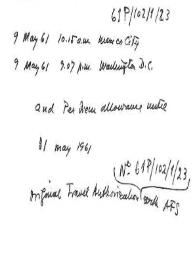 61P/102/1/23
9 May 61 10.15 a.m. Mexico City
9 May 61 9.07 p.m. Washington D.C.
and Per Diem allowance
31 May 1961
No 61P/102/1/23
Original Travel Authorization AFS